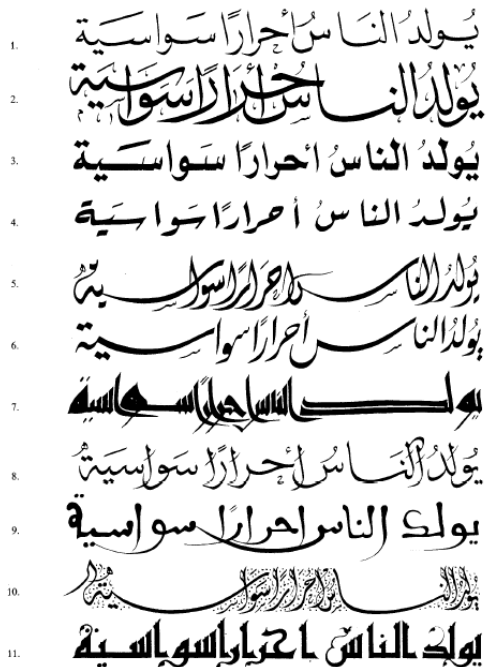 1. يُولدُ النَاسُ أحرارًا سَواسَية
2. يُولدُ الناسُ أحرَارًا سَوَاسَية
3. يُولدُ الناسُ أحرارًا سَواسَية
4. يُولدُ الناسُ أحرارًا سَواسَية
5. يُولَدُ الناس احرَارًا سواسية
6. يُولَدُ الناس أحرارًا سواسية
7. يولد الناس احرارًا سواسية
8. يُولدُ النَاسُ أحرارًا سَواسَية
9. يولد الناس احرارًا سواسية
10. يولد الناس احرارًا سواسية
11. يولد الناس احرارا سواسية